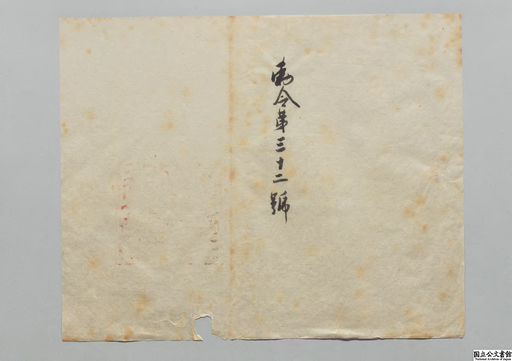 勅令第三十二號
国立公文書館
National Archives of Japan